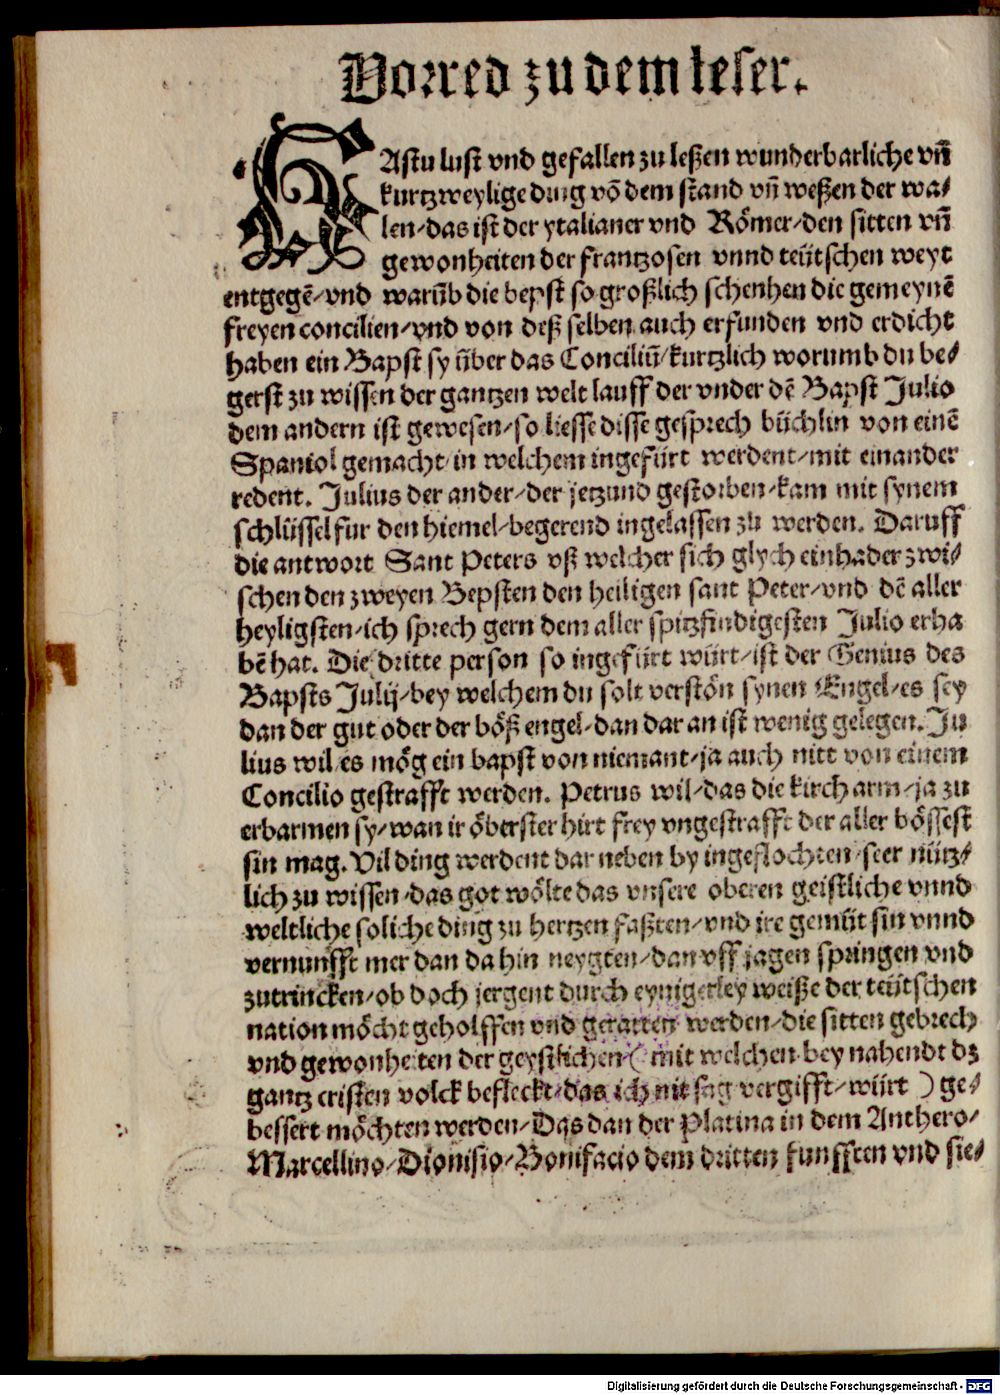 Vorred zu dem leser.
HAstu lust vnd gefallen zu leßen wunderbarliche vñ
kurtzweylige ding võ dem stand vñ weßen der wa⸗
len/das ist der ytalianer vnd Römer/den sitten vñ
gewonheiten der frantzosen vnnd teütschen weyt
entgegē/vnd warūb die bepst so großlich schenhen die gemeynē
freyen concilien/vnd von deß selben auch erfunden vnd erdicht
haben ein Bapst sy über das Conciliū/kurtzlich worumb du be⸗
gerst zu wissen der gantzen welt lauff der vnder dē Bapst Julio
dem andern ist gewesen/so liesse disse gesprech büchlin von einē
Spaniol gemacht/in welchem ingefürt werdent/mit einander
redent. Julius der ander/der jetzund gestorben/kam mit synem
schlüssel für den hiemel/begerend ingelassen zu werden. Daruff
die antwort Sant Peters vß welcher sich glych ein hader zwi⸗
schen den zweyen Bepsten den heiligen sant Peter/vnd dē aller
heyligsten/ich sprech gern dem aller spitzfindigesten Julio erha
bē hat. Die dritte person so ingefürt würt/ist der Genius des
Bapsts Julij/bey welchem du solt verstön synen Engel/es sey
dan der gut oder der böß engel/dan dar an ist wenig gelegen. Ju
lius wil es mög ein bapst von niemant/ja auch nitt von einem
Concilio gestrafft werden. Petrus wil/das die kirch arm/ja zu
erbarmen sy/wan ir öberster hirt frey vngestrafft der aller bössest
sin mag. Vil ding werdent dar neben by ingeflochten/seer nütz⸗
lich zu wissen/das got wölte das vnsere oberen geistliche vnnd
weltliche soliche ding zu hertzen faßten/vnd ire gemüt sin vnnd
vernunfft mer dan da hin neygten/dan vff jagen springen vnd
zutrincken/ob doch jergent durch eynigerley weiße der teütschen
nation möcht geholffen vnd geratten werden/die sitten gebrech
vnd gewonheiten der geystlichen/( mit welchen bey nahendt dz
gantz cristen volck befleckt/das ich nit sag vergifft/würt ) ge⸗
bessert möchten werden/Das dan der Platina in dem Anthero/
Marcellino/Dionisio/Bonifacio dem dritten funfften vnd sie⸗
Digitalisierung gefördert durch die Deutsche Forschungsgemeinschaft - DFG